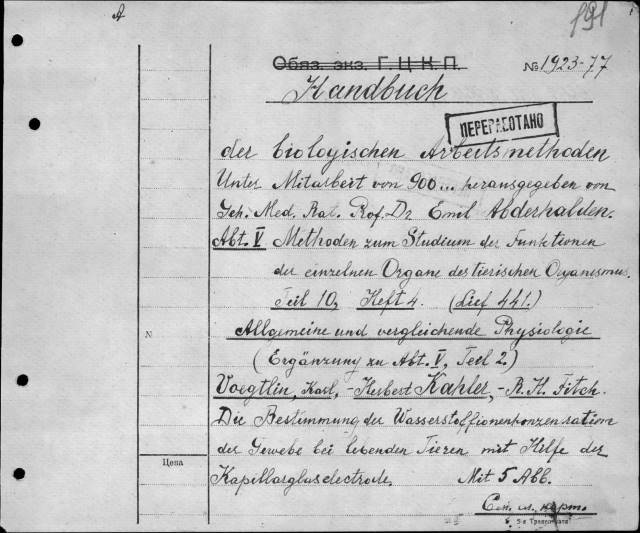 А
191
Обяз. экз. Г.Ц.К.П. № 1923-77
Handbuch
ПЕРЕРАБОТАНО
der biologischen Arbeitsmethoden
Unter Mitarbeit von 900... herausgegeben von
Geh. Med. Rat. Prof. Dr. Emil Abderhalden.
Abt. V Methoden zum Studium der Funktionen
der einzelnen Organe des tierischen Organismus.
Teil 10, Heft 4. (Lief 441.)
N Allgemeine und vergleichende Physiologie
(Ergänzung zu Abt. V, Teil 2.)
Voegtlin, Karl, - Herbert Kahler, - R. H. Fitch.
Die Bestimmung der Wasserstoffionenkonzensration
der Gewebe bei lebenden Tieren mit Hilfe der
Цена
Kapillarglaselectrode. Mit 5 Abb.
См. карт.